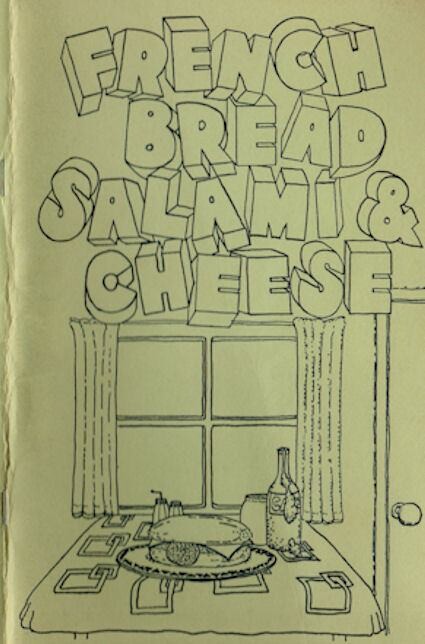 FRENCH
BREAD
SALAMI &
CHEESE